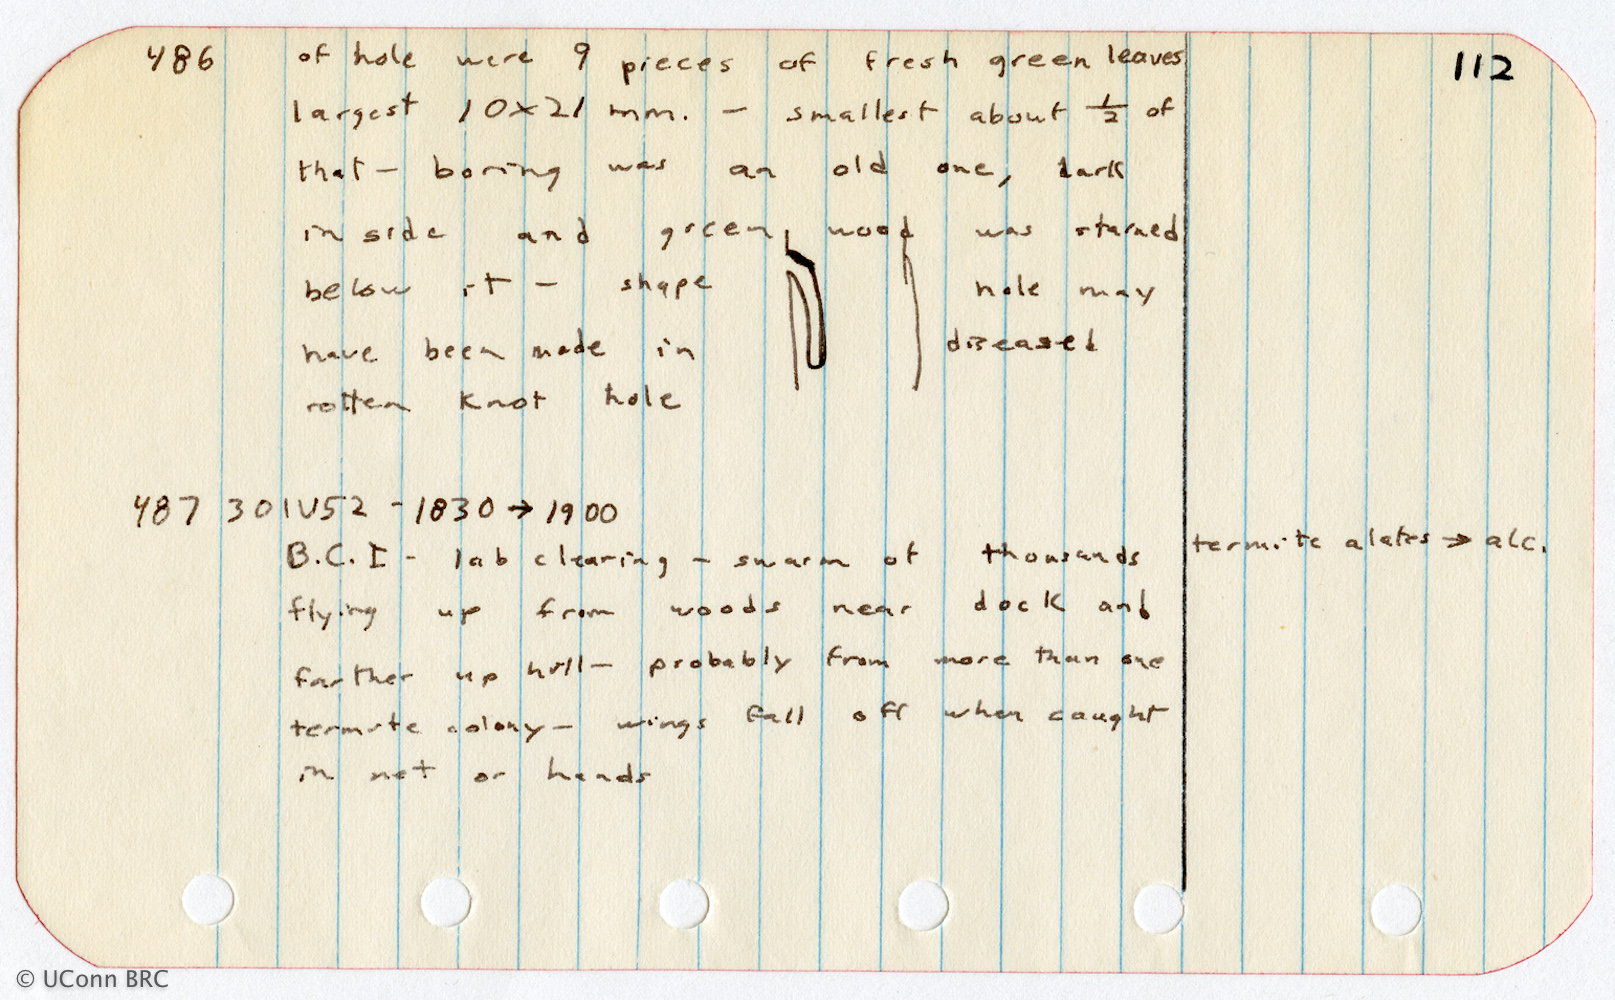 486 of hole were 9 pieces of fresh green leaves 112
largest 10x21 mm. - smallest about ½ of
that - boring was an old one, dark
inside and green wood was stained
below it - shape hole may
have been made in diseased
rotten knot hole
487 30IV52 - 1830 → 1900
B.C.I - lab clearing - swarm of thousands termite alates → alc.
flying up from woods near dock and
farther up hill - probably from more than one
termite colony - wings fall off when caught
in net or hands
© UConn BRC